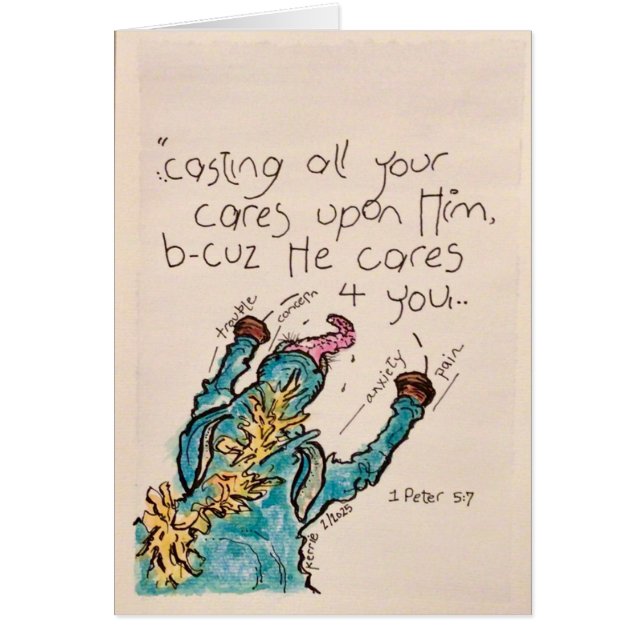 "..casting all your
cares upon Him,
b-cuz He cares
4 you..
trouble
concern
anxiety
pain
1 Peter 5:7
Kerrie 2/2025